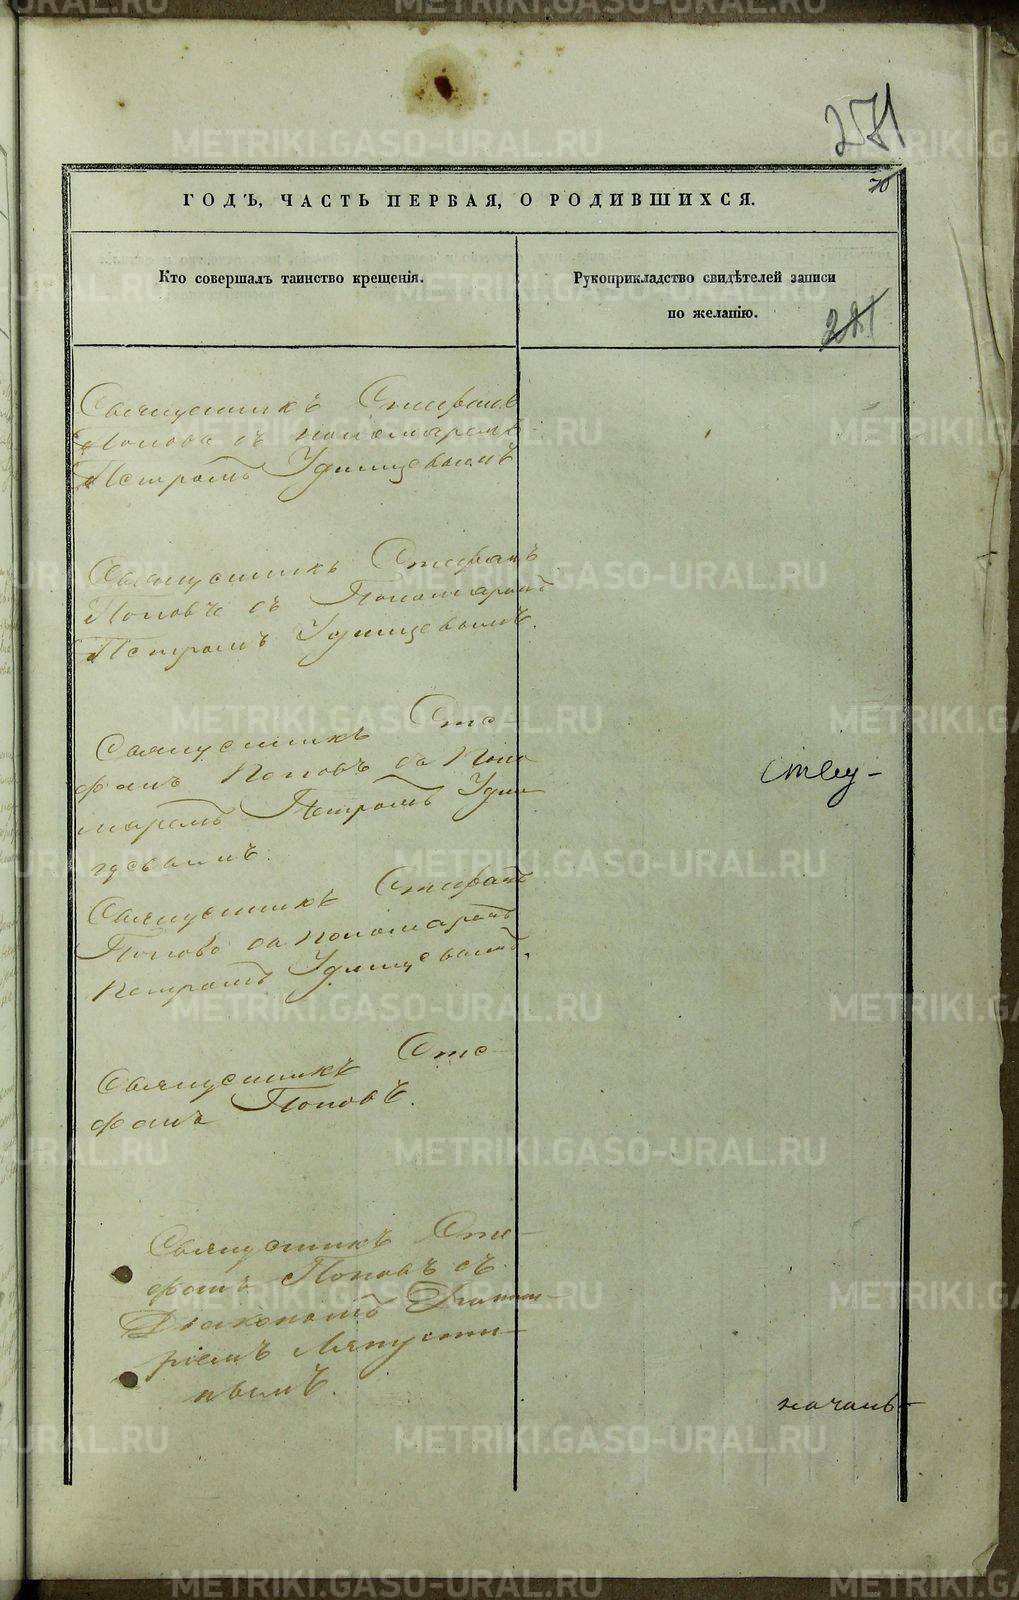 271
70
ГОДЪ, ЧАСТЬ ПЕРВАЯ, О РОДИВШИХСЯ.
Кто совершалъ таинство крещенія.
Рукоприкладство свидѣтелей записи
по желанію.
221
Священникъ Стефанъ
Поповъ съ пономаремъ
Петромъ Удинцевымъ
Священникъ Стефанъ
Поповъ съ Пономаремъ
Петромъ Удинцевымъ.
Священникъ Сте
фанъ Поповъ съ Поно
маремъ Петромъ Удин
цевымъ.
Священникъ Стефанъ
Поповъ съ пономаремъ
Петромъ Удинцевымъ.
Священникъ Сте-
фанъ Поповъ.
Священникъ Сте-
фанъ Поповъ съ
Діакономъ Димит-
ріемъ Ляпусти-
нымъ.
METRIKI.GASO-URAL.RU